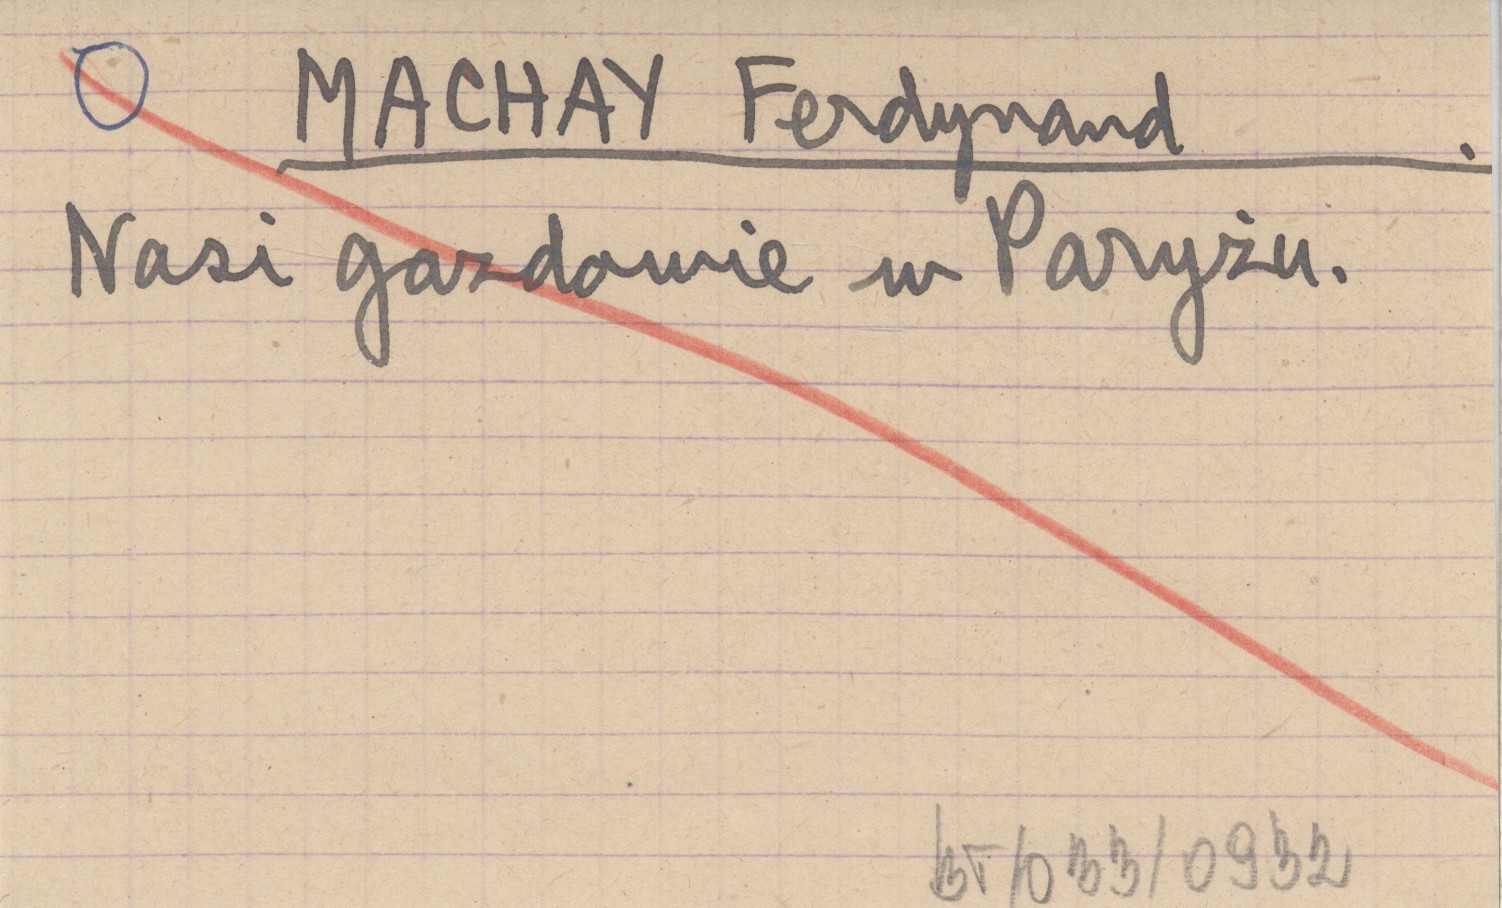 MACHAY Ferdynand .
Nasi gazdowie w Paryżu.
BT/033/0932